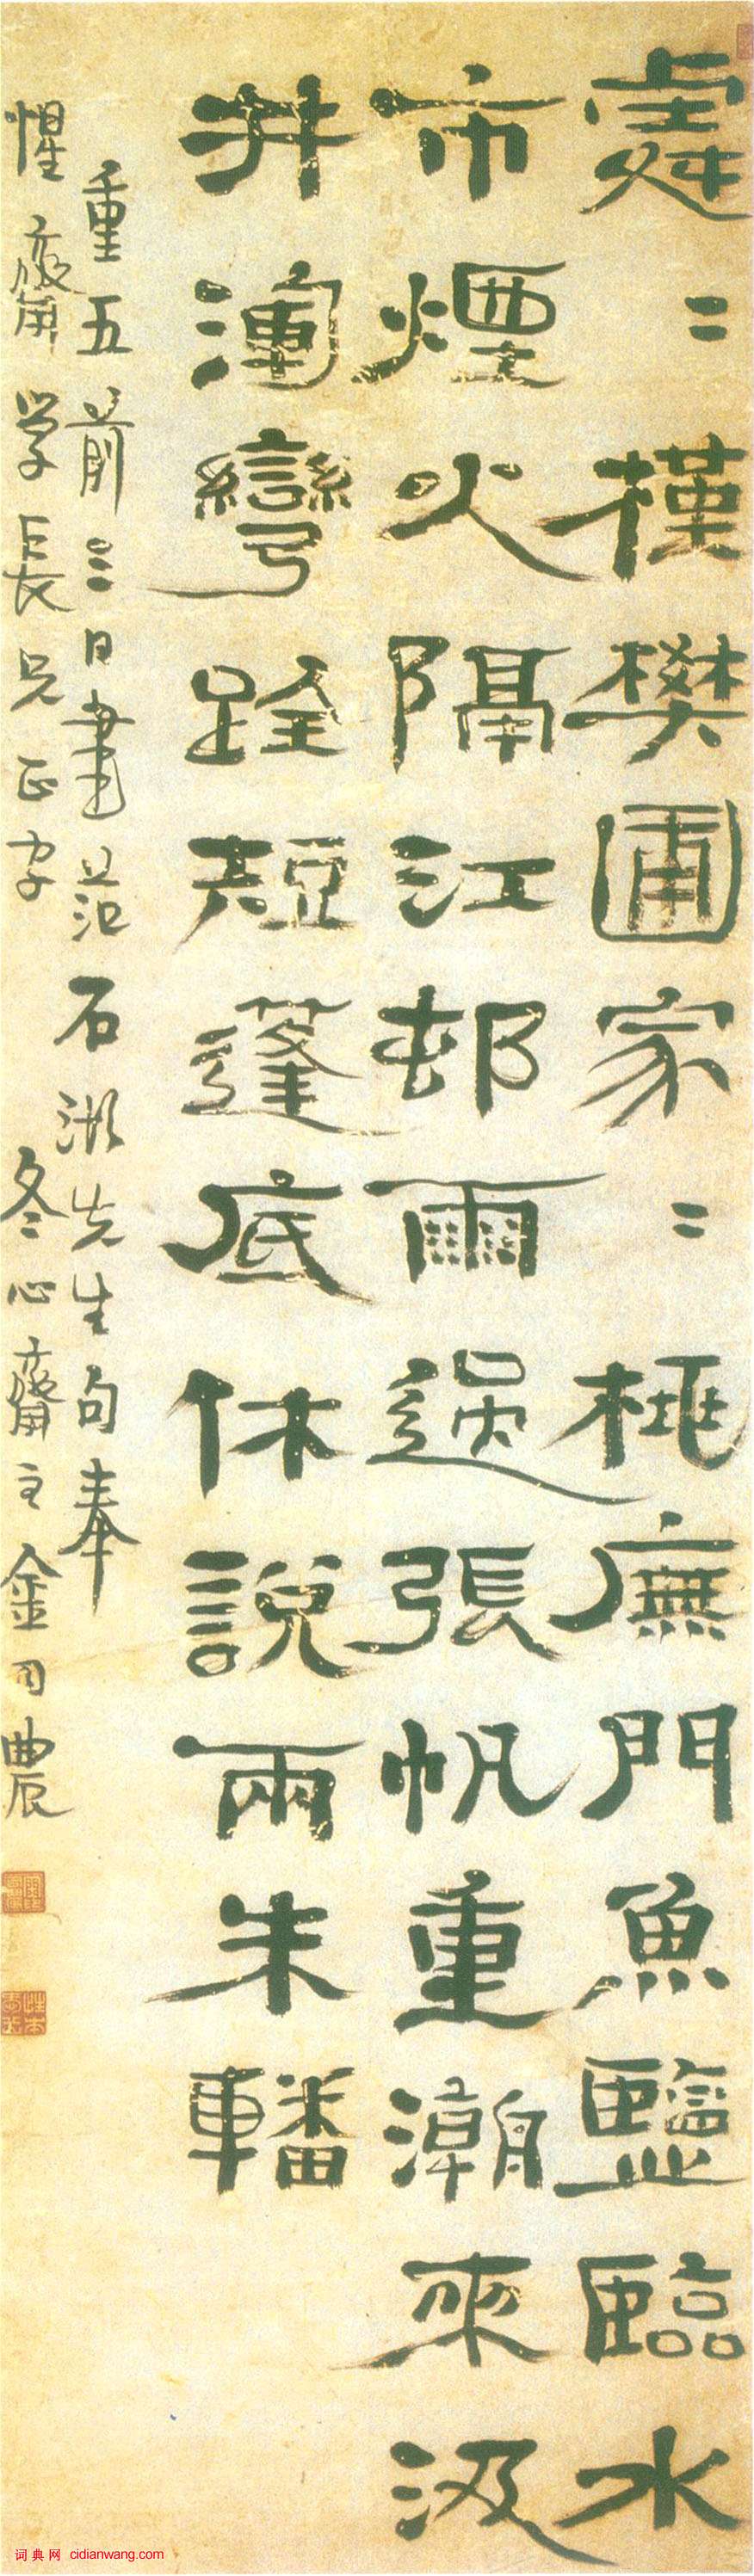 處〻槿樊圃家〻桃廡門魚鹽臨水
市煙火隔江邨雨過張帆重潮來汲
井渾彎跧短蓬底休說兩朱轓
重五前三日書范石湖先生句奉
惺齋学長兄正字 冬心齋主金司農
词典网 cidianwang.com